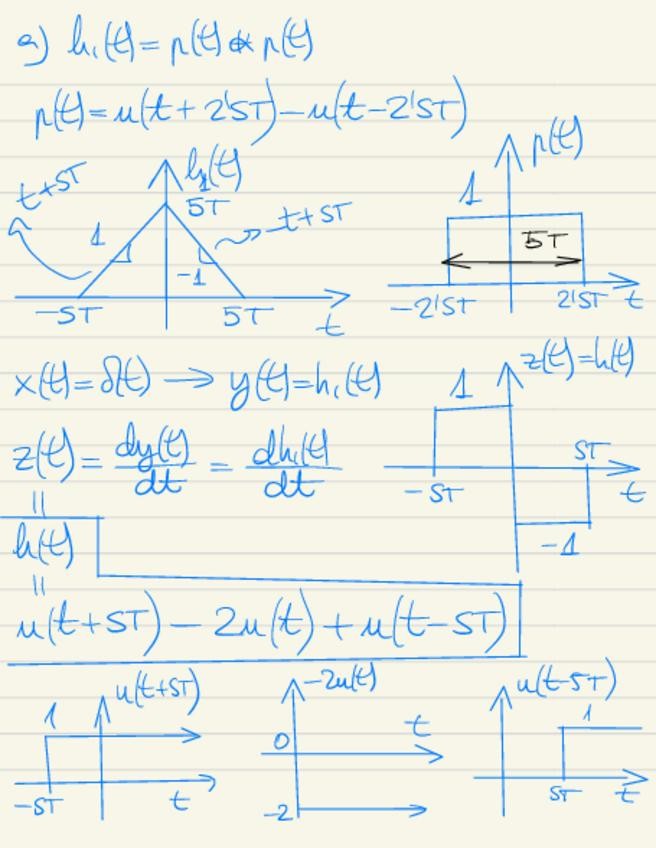 a) h₁(t) = p(t) * p(t)
p(t) = u(t + 2'5T) - u(t - 2'5T)
t+5T
h₁(t)
5T
-t+5T
1
-1
-5T
5T
t
p(t)
1
5T
-2'5T
2'5T
t
x(t) = δ(t) → y(t) = h₁(t)
z(t) = dy(t)/dt = dh₁(t)/dt
=
h(t)
=
u(t+5T) - 2u(t) + u(t-5T)
z(t) = h(t)
1
5T
-5T
t
-1
u(t+5T)
1
-5T
t
-2u(t)
0
t
-2
u(t-5T)
1
5T
t